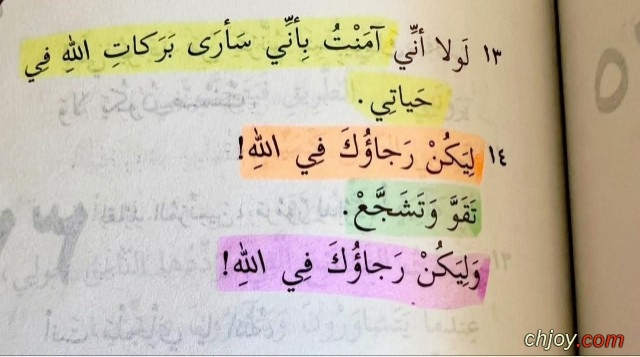 ١٣ لَولا أنِّي آمَنْتُ بِأنِّي سَأرَى بَرَكاتِ اللهِ فِي
حَياتِي.
١٤ لِيَكُنْ رَجاؤُكَ فِي اللهِ!
تَقَوَّ وَتَشَجَّعْ.
وَلِيَكُنْ رَجاؤُكَ فِي اللهِ!
chjoy.com